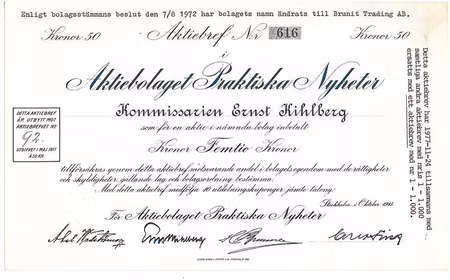 Enligt bolagsstämmans beslut den 7/8 1972 har bolagets namn ändrats till Brunit Trading AB.
Kronor 50 Aktiebref Nr 616 Kronor 50
i
Aktiebolaget Praktiska Nyheter
Kommissarien Ernst Kihlberg
som för en aktie i nämnda bolag inbetalt
Kronor Femtio Kronor
tillförsäkras genom detta aktiebref motsvarande andel i bolagets egendom med de rättigheter
och skyldigheter, gällande lag och bolagsordning bestämma.
Med detta aktiebref medfölja 10 utdelningskuponger jämte talong.
Stockholm i Oktober
För Aktiebolaget Praktiska Nyheter
DETTA AKTIEBREF
ÄR UTBYTT MOT
AKTIEBREFVET No
92.
UTGIFVET I MAJ 1911
Å 50 KR.
Detta aktiebrev har 1977-11-21 tillsammans med
samtliga andra aktiebrev med nr:is 1 - 1.000
ersatts med ett aktiebrev med nr 1 - 1.000.